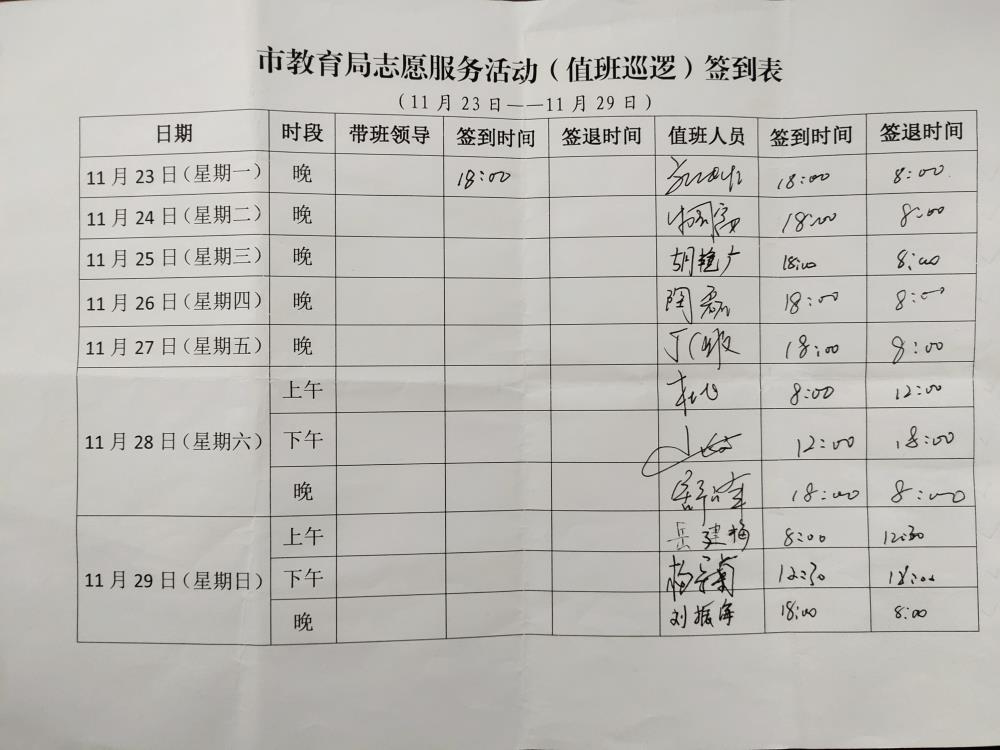 市教育局志愿服务活动（值班巡逻）签到表
（11月23日——11月29日）
日期 时段 带班领导 签到时间 签退时间 值班人员 签到时间 签退时间
11月23日（星期一） 晚 18:00 18:00 8:00
11月24日（星期二） 晚 18:00 8:00
11月25日（星期三） 晚 胡艳广 18:00 8:00
11月26日（星期四） 晚 陶磊 18:00 8:00
11月27日（星期五） 晚 18:00 8:00
11月28日（星期六） 上午 8:00 12:00
下午 12:00 18:00
晚 18:00 8:00
11月29日（星期日） 上午 岳建梅 8:00 12:30
下午 12:30 18:00
晚 刘振 18:00 8:00